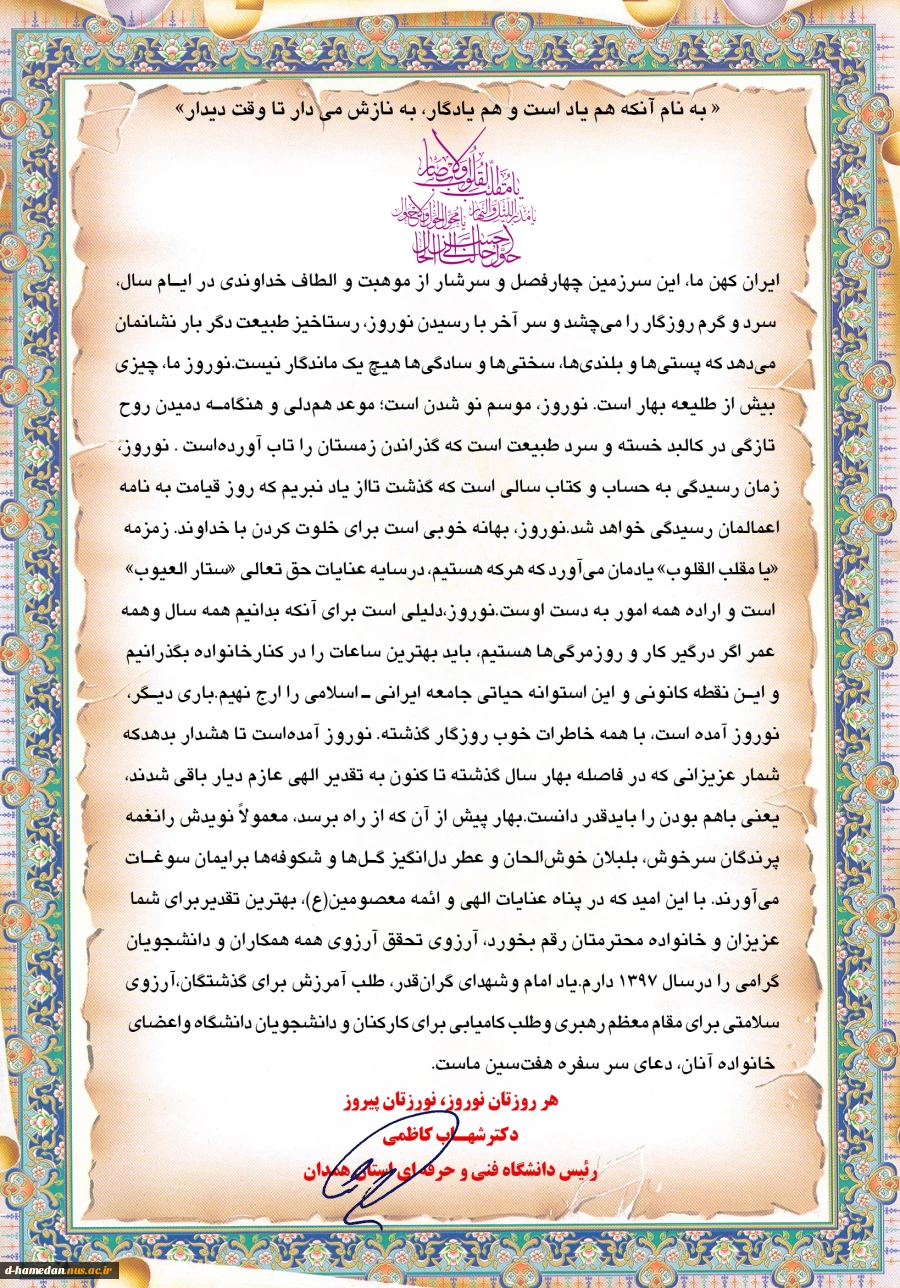 « به نام آنکه هم یاد است و هم یادگار، به نازش می دار تا وقت دیدار»
یا مقلب القلوب و الابصار
یا مدبر اللیل و النهار یا محول الحول و الاحوال
حول حالنا الی احسن الحال
ایران کهن ما، این سرزمین چهارفصل و سرشار از موهبت و الطاف خداوندی در ایـام سال،
سرد و گرم روزگار را می‌چشد و سر آخر با رسیدن نوروز، رستاخیز طبیعت دگر بار نشانمان
می‌دهد که پستی‌ها و بلندی‌ها، سختی‌ها و سادگی‌ها هیچ یک ماندگار نیست.نوروز ما، چیزی
بیش از طلیعه بهار است. نوروز، موسم نو شدن است؛ موعد هم‌دلی و هنگامـه دمیدن روح
تازگی در کالبد خسته و سرد طبیعت است که گذراندن زمستان را تاب آورده‌است . نوروز،
زمان رسیدگی به حساب و کتاب سالی است که گذشت تااز یاد نبریم که روز قیامت به نامه
اعمالمان رسیدگی خواهد شد.نوروز، بهانه خوبی است برای خلوت کردن با خداوند. زمزمه
«یا مقلب القلوب» یادمان می‌آورد که هرکه هستیم، درسایه عنایات حق تعالی «ستار العیوب»
است و اراده همه امور به دست اوست.نوروز،دلیلی است برای آنکه بدانیم همه سال وهمه
عمر اگر درگیر کار و روزمرگی‌ها هستیم، باید بهترین ساعات را در کنارخانواده بگذرانیم
و ایـن نقطه کانونی و این استوانه حیاتی جامعه ایرانی ـ اسلامی را ارج نهیم.باری دیـگر،
نوروز آمده است، با همه خاطرات خوب روزگار گذشته. نوروز آمده‌است تا هشدار بدهدکه
شمار عزیزانی که در فاصله بهار سال گذشته تا کنون به تقدیر الهی عازم دیار باقی شدند،
یعنی باهم بودن را بایدقدر دانست.بهار پیش از آن که از راه برسد، معمولاً نویدش رانغمه
پرندگان سرخوش، بلبلان خوش‌الحان و عطر دل‌انگیز گـل‌ها و شکوفه‌ها برایمان سوغـات
می‌آورند. با این امید که در پناه عنایات الهی و ائمه معصومین(ع)، بهترین تقدیربرای شما
عزیزان و خانواده محترمتان رقم بخورد، آرزوی تحقق آرزوی همه همکاران و دانشجویان
گرامی را درسال ۱۳۹۷ دارم.یاد امام وشهدای گران‌قدر، طلب آمرزش برای گذشتگان،آرزوی
سلامتی برای مقام معظم رهبری وطلب کامیابی برای کارکنان و دانشجویان دانشگاه واعضای
خانواده آنان، دعای سر سفره هفت‌سین ماست.
هر روزتان نوروز، نورزتان پیروز
دکترشهـاب کاظمی
رئیس دانشگاه فنی و حرفه ای استان همدان
d-hamedan.nus.ac.ir